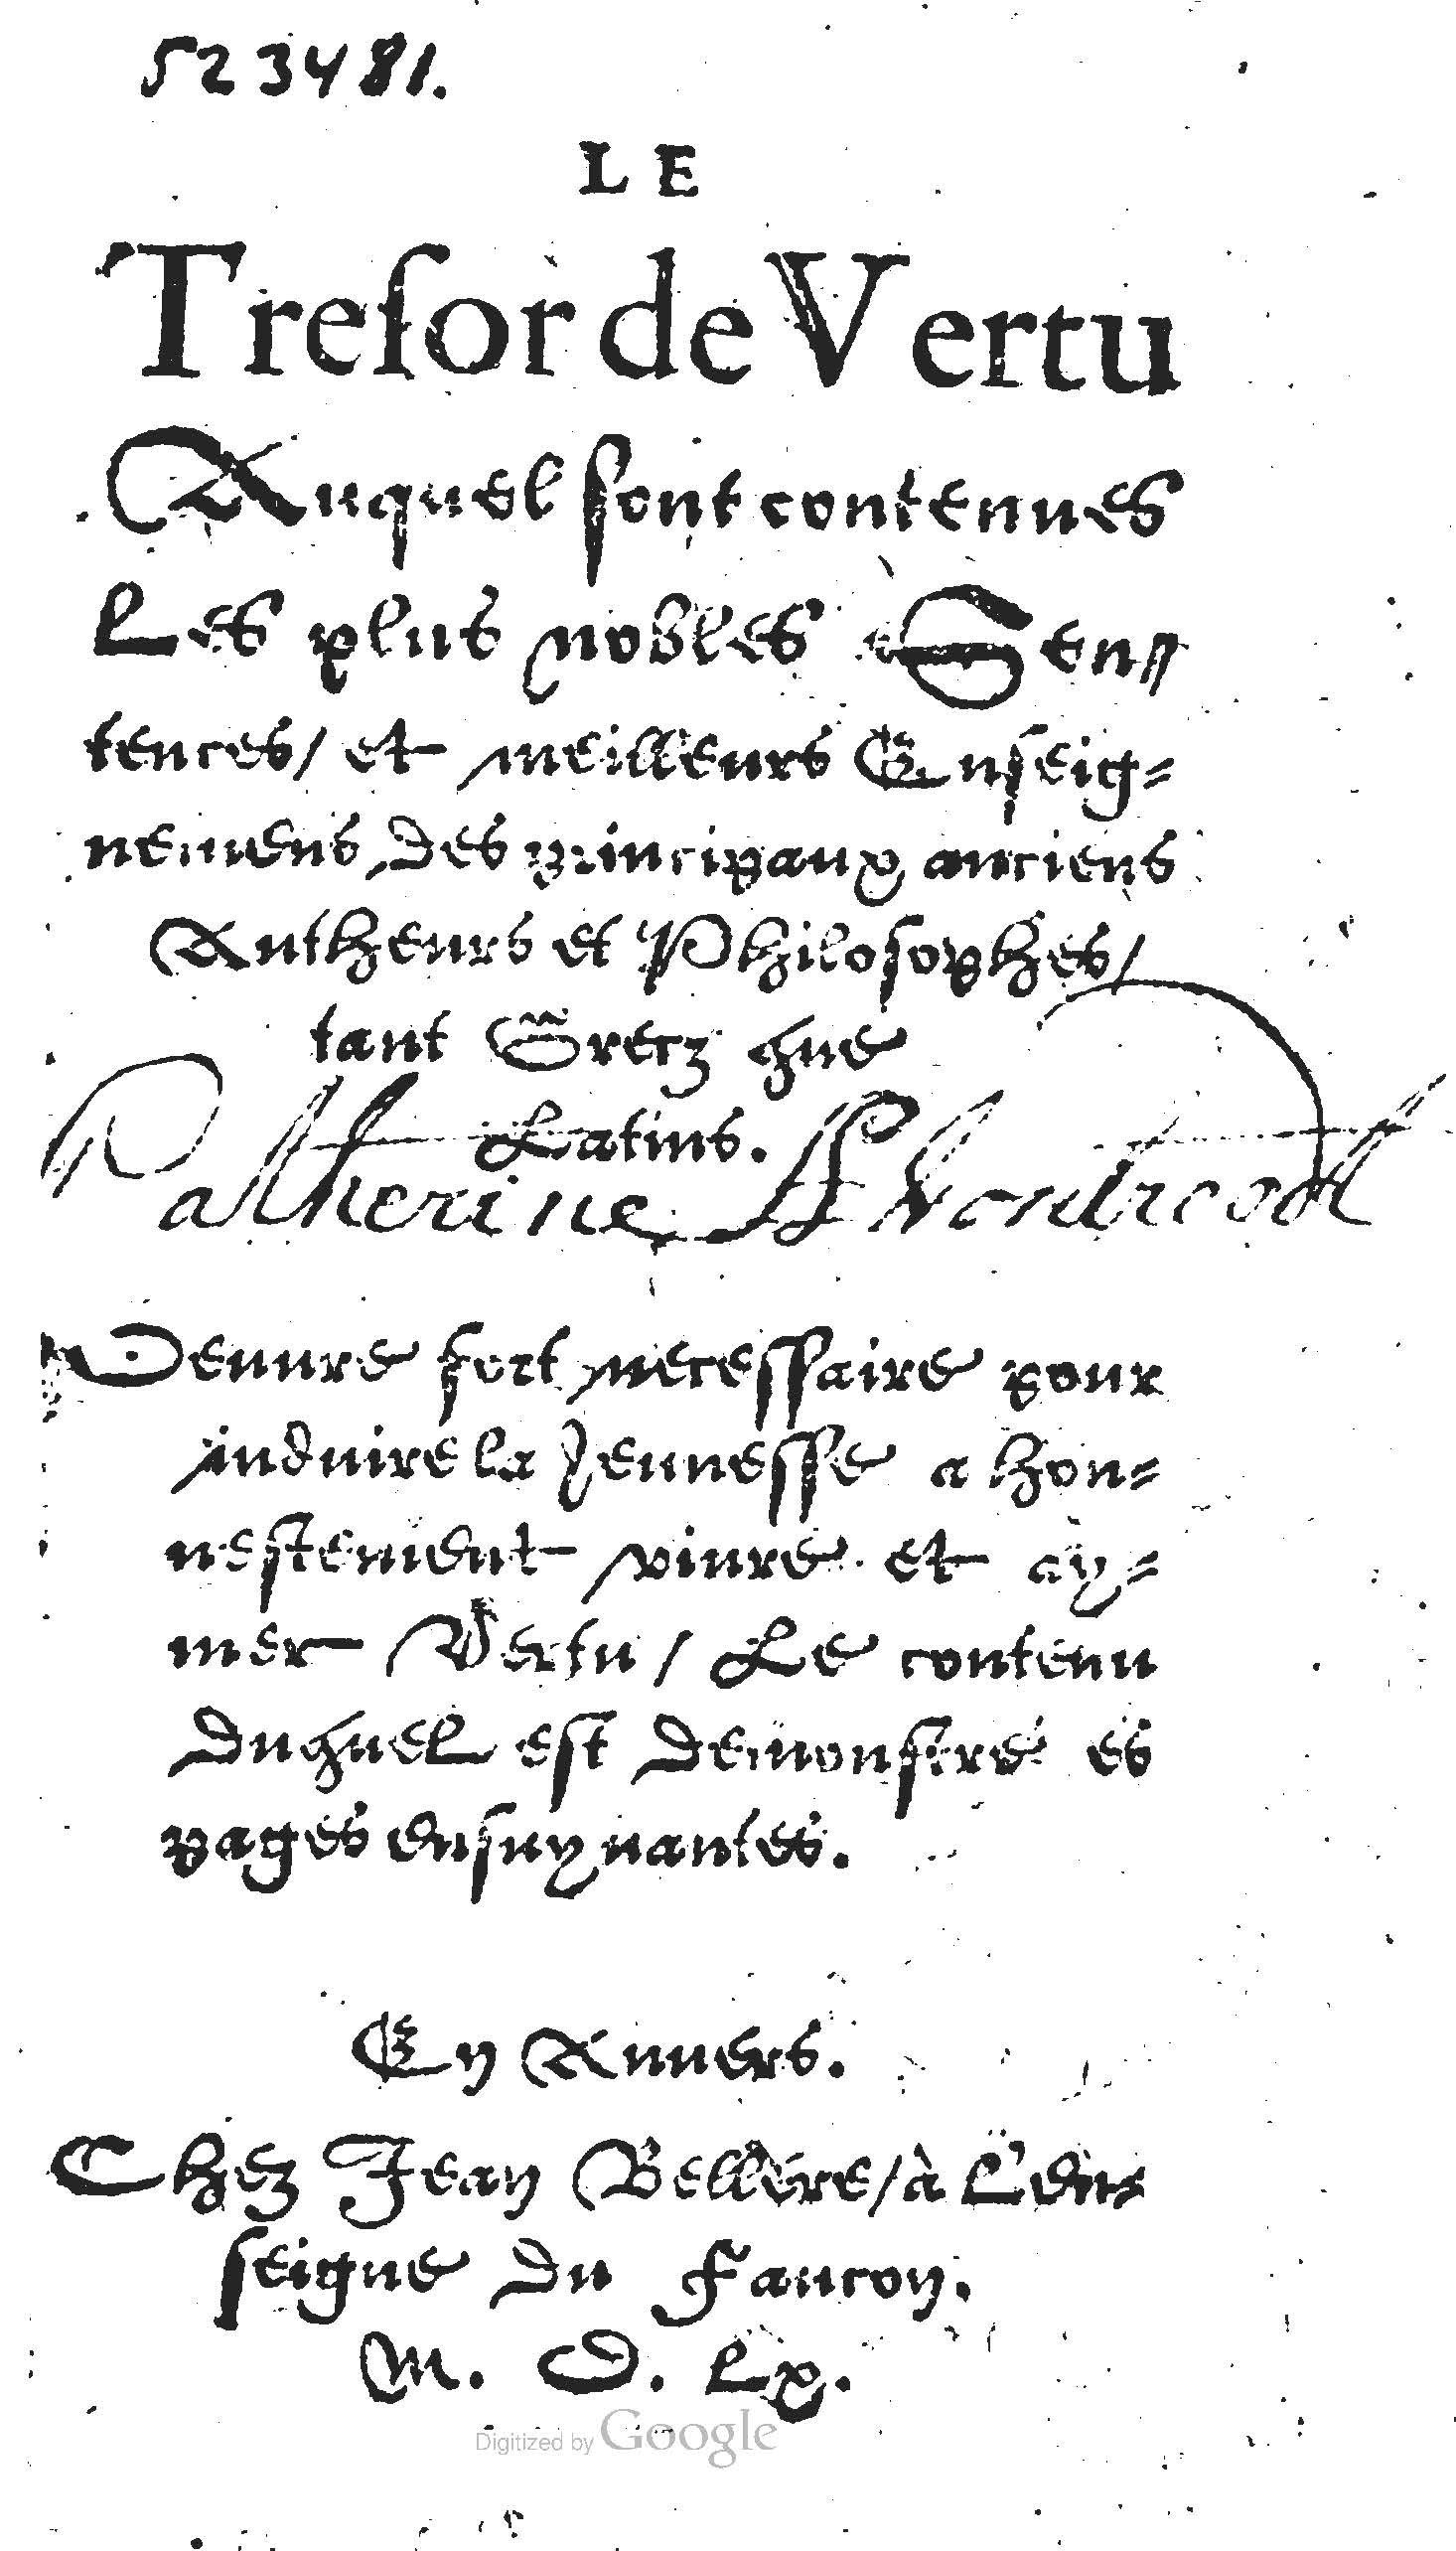 523481.
LE
Treſor de Vertu
Auquel ſont contenues
Les plus nobles Sen⸗
tences/ et meilleurs Enſeig⸗
nemens des principaux anciens
Autheurs et Philoſophes/
tant Grecz que
Latins.
Catherine
Oeuure fort neceſſaire pour
induire la Jeuneſſe a hon⸗
neſtement viure et ay⸗
mer Vertu / Le contenu
duquel eſt demonſtré es
pages enſuyuantes.
En Anuers.
Chez Jean Bellére/à L'en⸗
ſeigne du Faucon.
M. D. Lx.
Digitized by Google